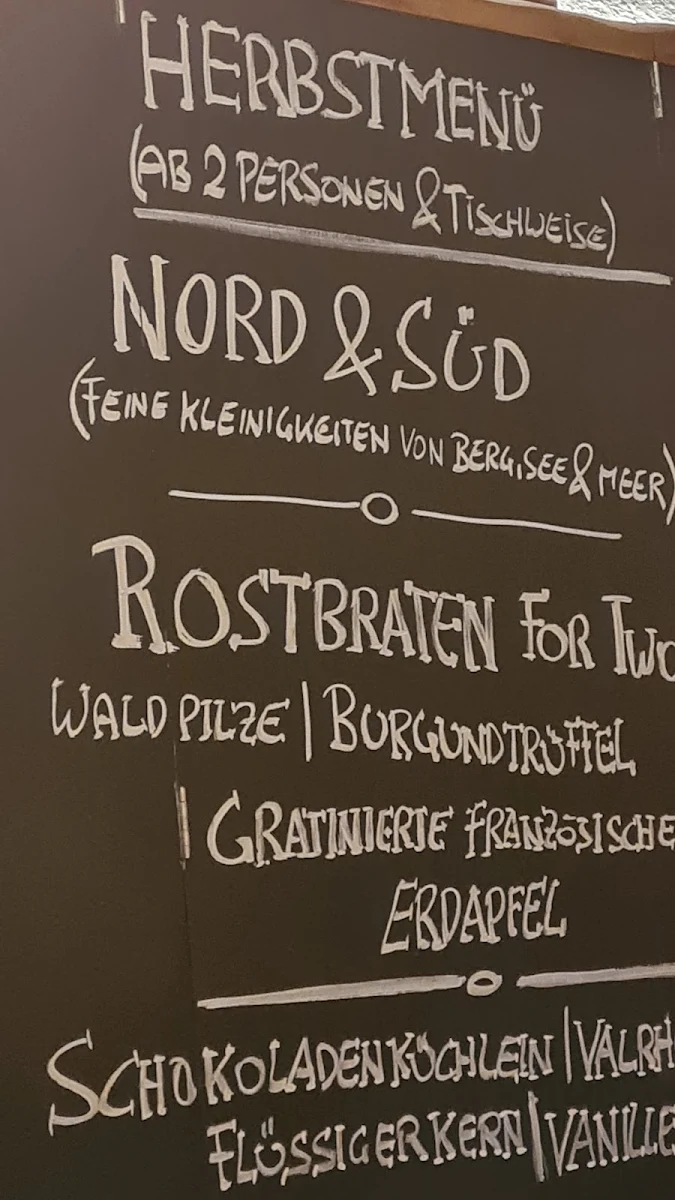 HERBSTMENÜ
(AB 2 PERSONEN & TISCHWEISE)
NORD & SÜD
(FEINE KLEINIGKEITEN VON BERG, SEE & MEER)
ROSTBRATEN FOR TWO
WALD PILZE | BURGUNDTRÜFFEL
GRATINIERTE FRANZÖSISCHE
ERDÄPFEL
SCHOKOLADENKÜCHLEIN | VALRH
FLÜSSIGER KERN | VANILLE